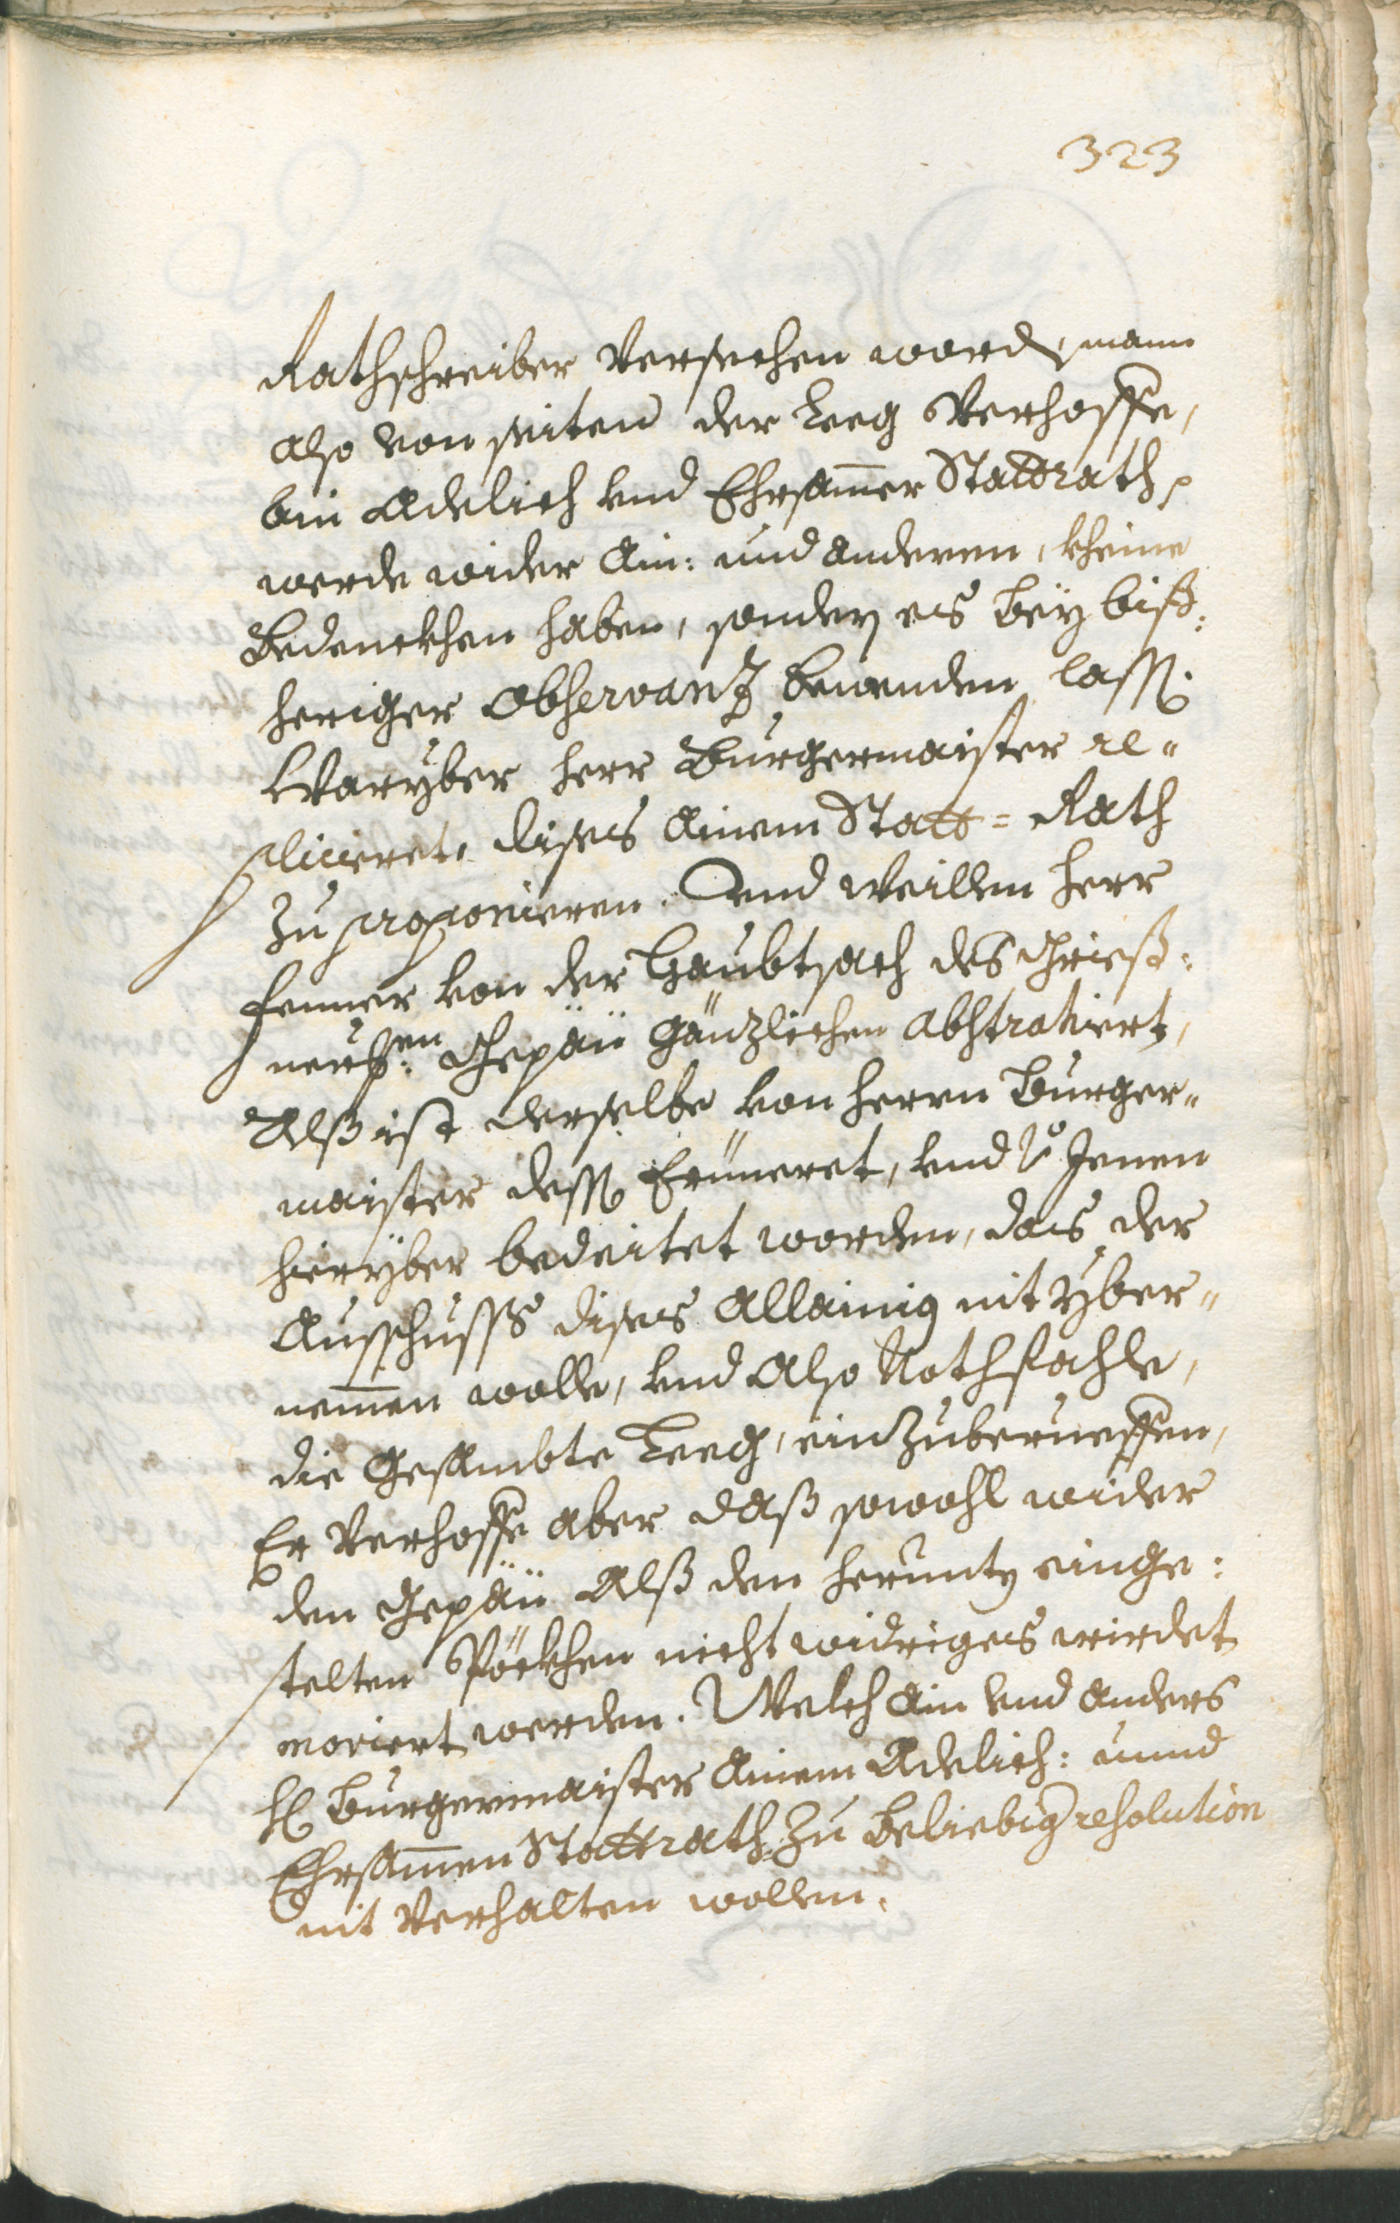 323
Rathschreiber versechen worden, mann
also von seiten der Leeg verhoffe,
ain Adelich vnd Ehrsamer Stattrath,
werde wider Ain: und anderen, kheine
Bedenckhen haben, sonder es bey biß:
heriger observanz bewenden lassen.
Waryber herr Burgermaister re„
plicieret, dises Ainem Statt=Rath
zu proponieren. Und weillen herr
Fenner von der Haubtsach des
Gepäü gänzlichen abstrahiert,
Alß ist derselbe von herrn Burger„
maister dess Erineret, vnd Jenen
hieryber bedeitet worden, das der
Ausschuss dises Allainig nit yber„
nemen wolle, vnd also Nothfahls,
die Gesambte Leeg, einzuberueffen,
Er verhoffe aber daß sowohl wider
den Gepäü Alß den herunt einge:
stelten Pöckhen nicht widriges wirdet
moviert werden. Welch Ain vnd anders
H: Burgermaister Ainem Adelich: unnd
Ehrsamen Stattrath zu beliebig resolution
nit verhalten wollen.